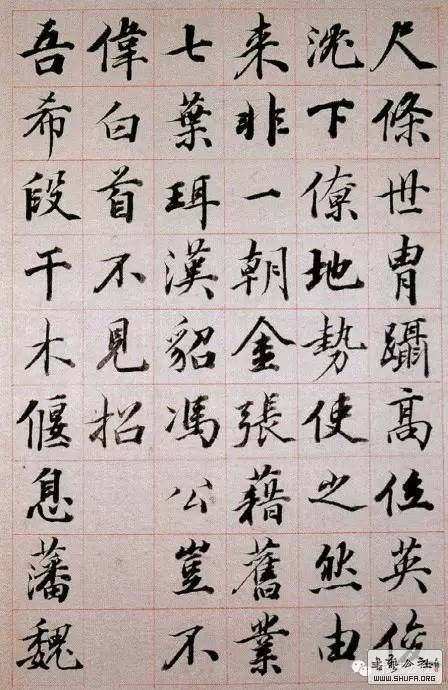 尺條世胄躡高位英俊
沈下僚地勢使之然由
来非一朝金張藉舊業
七葉珥漢貂馮公豈不
偉白首不見招
吾希段干木偃息藩魏
WWW.SHUFA.ORG